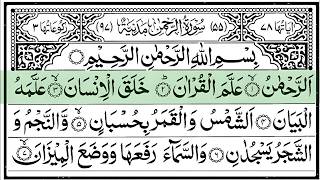 اٰيَاتُهَا ٧٨ (٥٥) سُوْرَةُ الرَّحْمٰنِ مَدَنِيَّةٌ (٩٧) رُكُوْعَاتُهَا ٣
بِسْمِ اللّٰهِ الرَّحْمٰنِ الرَّحِيْمِ
اَلرَّحْمٰنُ ۙ﴿١﴾ عَلَّمَ الْقُرْاٰنَ ؕ﴿٢﴾ خَلَقَ الْاِنْسَانَ ۙ﴿٣﴾ عَلَّمَهُ
الْبَيَانَ ﴿٤﴾ اَلشَّمْسُ وَالْقَمَرُ بِحُسْبَانٍ ﴿٥﴾ وَّالنَّجْمُ وَ
الشَّجَرُ يَسْجُدٰنِ ﴿٦﴾ وَالسَّمَآءَ رَفَعَهَا وَوَضَعَ الْمِيْزَانَ ۙ﴿٧﴾